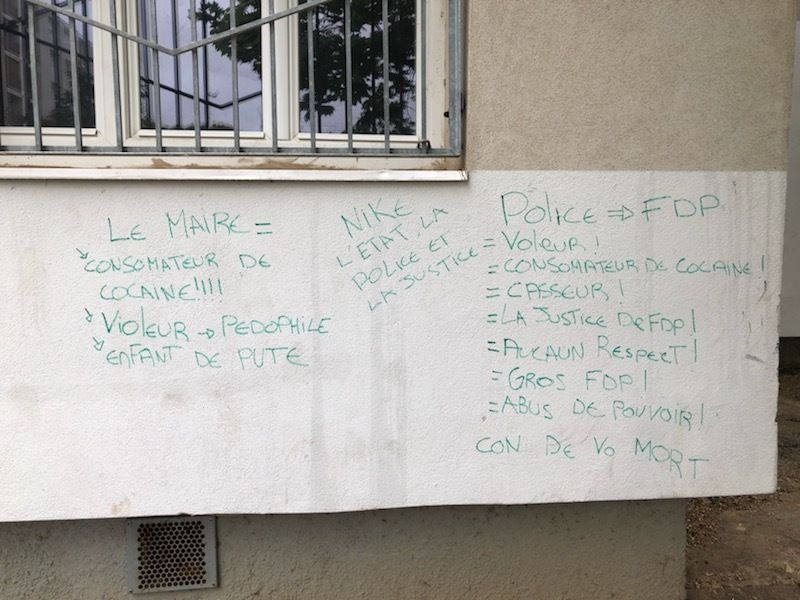 LE MAIRE =
CONSOMATEUR DE
COCAINE!!!!
VIOLEUR → PEDOPHILE
ENFANT DE PUTE
NIKE
L'ETAT, LA
POLICE ET
LA JUSTICE
POLICE ⇒ FDP
= VOLEUR !
= CONSOMATEUR DE COCAINE !
= CASSEUR !
= LA JUSTICE DE FDP !
= AUCAUN RESPECT !
= GROS FDP !
= ABUS DE POUVOIR !
CON DE VO MORT